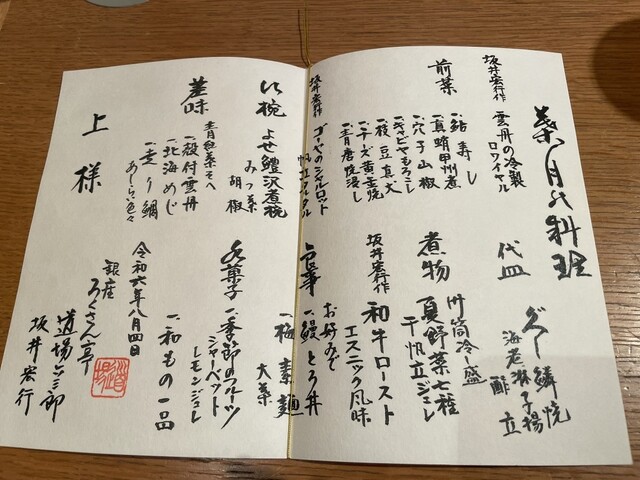 葉月の料理
坂井宏行作
雲丹の冷製
ロワイヤル
前菜
一、鮎寿し
一、真蛸甲州煮
一、穴子山椒
一、キャビアもろこし
一、枝豆真丈
一、チーズ黄金焼
一、青唐焼浸し
坂井宏行作
ゴーヤのシャルロット
帆立タルタル
沢煮椀
よせ鱧沢煮椀
みつ葉
胡椒
差味
青紅葉そへ
一、殻付雲丹
一、北海めじ
一、走り鯛
あしらい色々
上様
代皿
グジ鱗焼
海老林子揚
酢立
煮物
竹筒冷し盛
夏野菜七種
干帆立ジュレ
坂井宏行作
和牛ロースト
エスニック風味
食事
お好みで
一、鰻とろ丼
一、梅素麺
大葉
水菓子
一、季節のフルーツ
シャーベット
レモンジュレ
一、和もの一品
令和六年八月四日
銀座
ろくさん亭
道場六三郎
坂井宏行